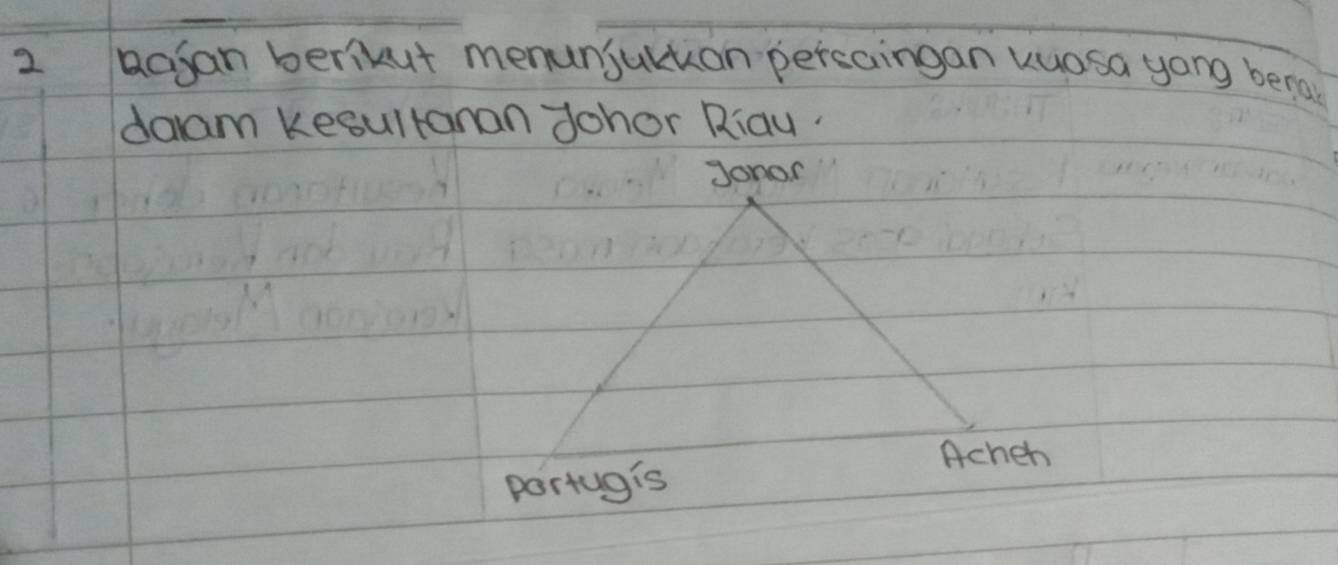 2 Rajan berikut menunjukkan persaingan kuasa yang
dalam Kesultanan Johor Riau.
Johor
Portugis
Acheh